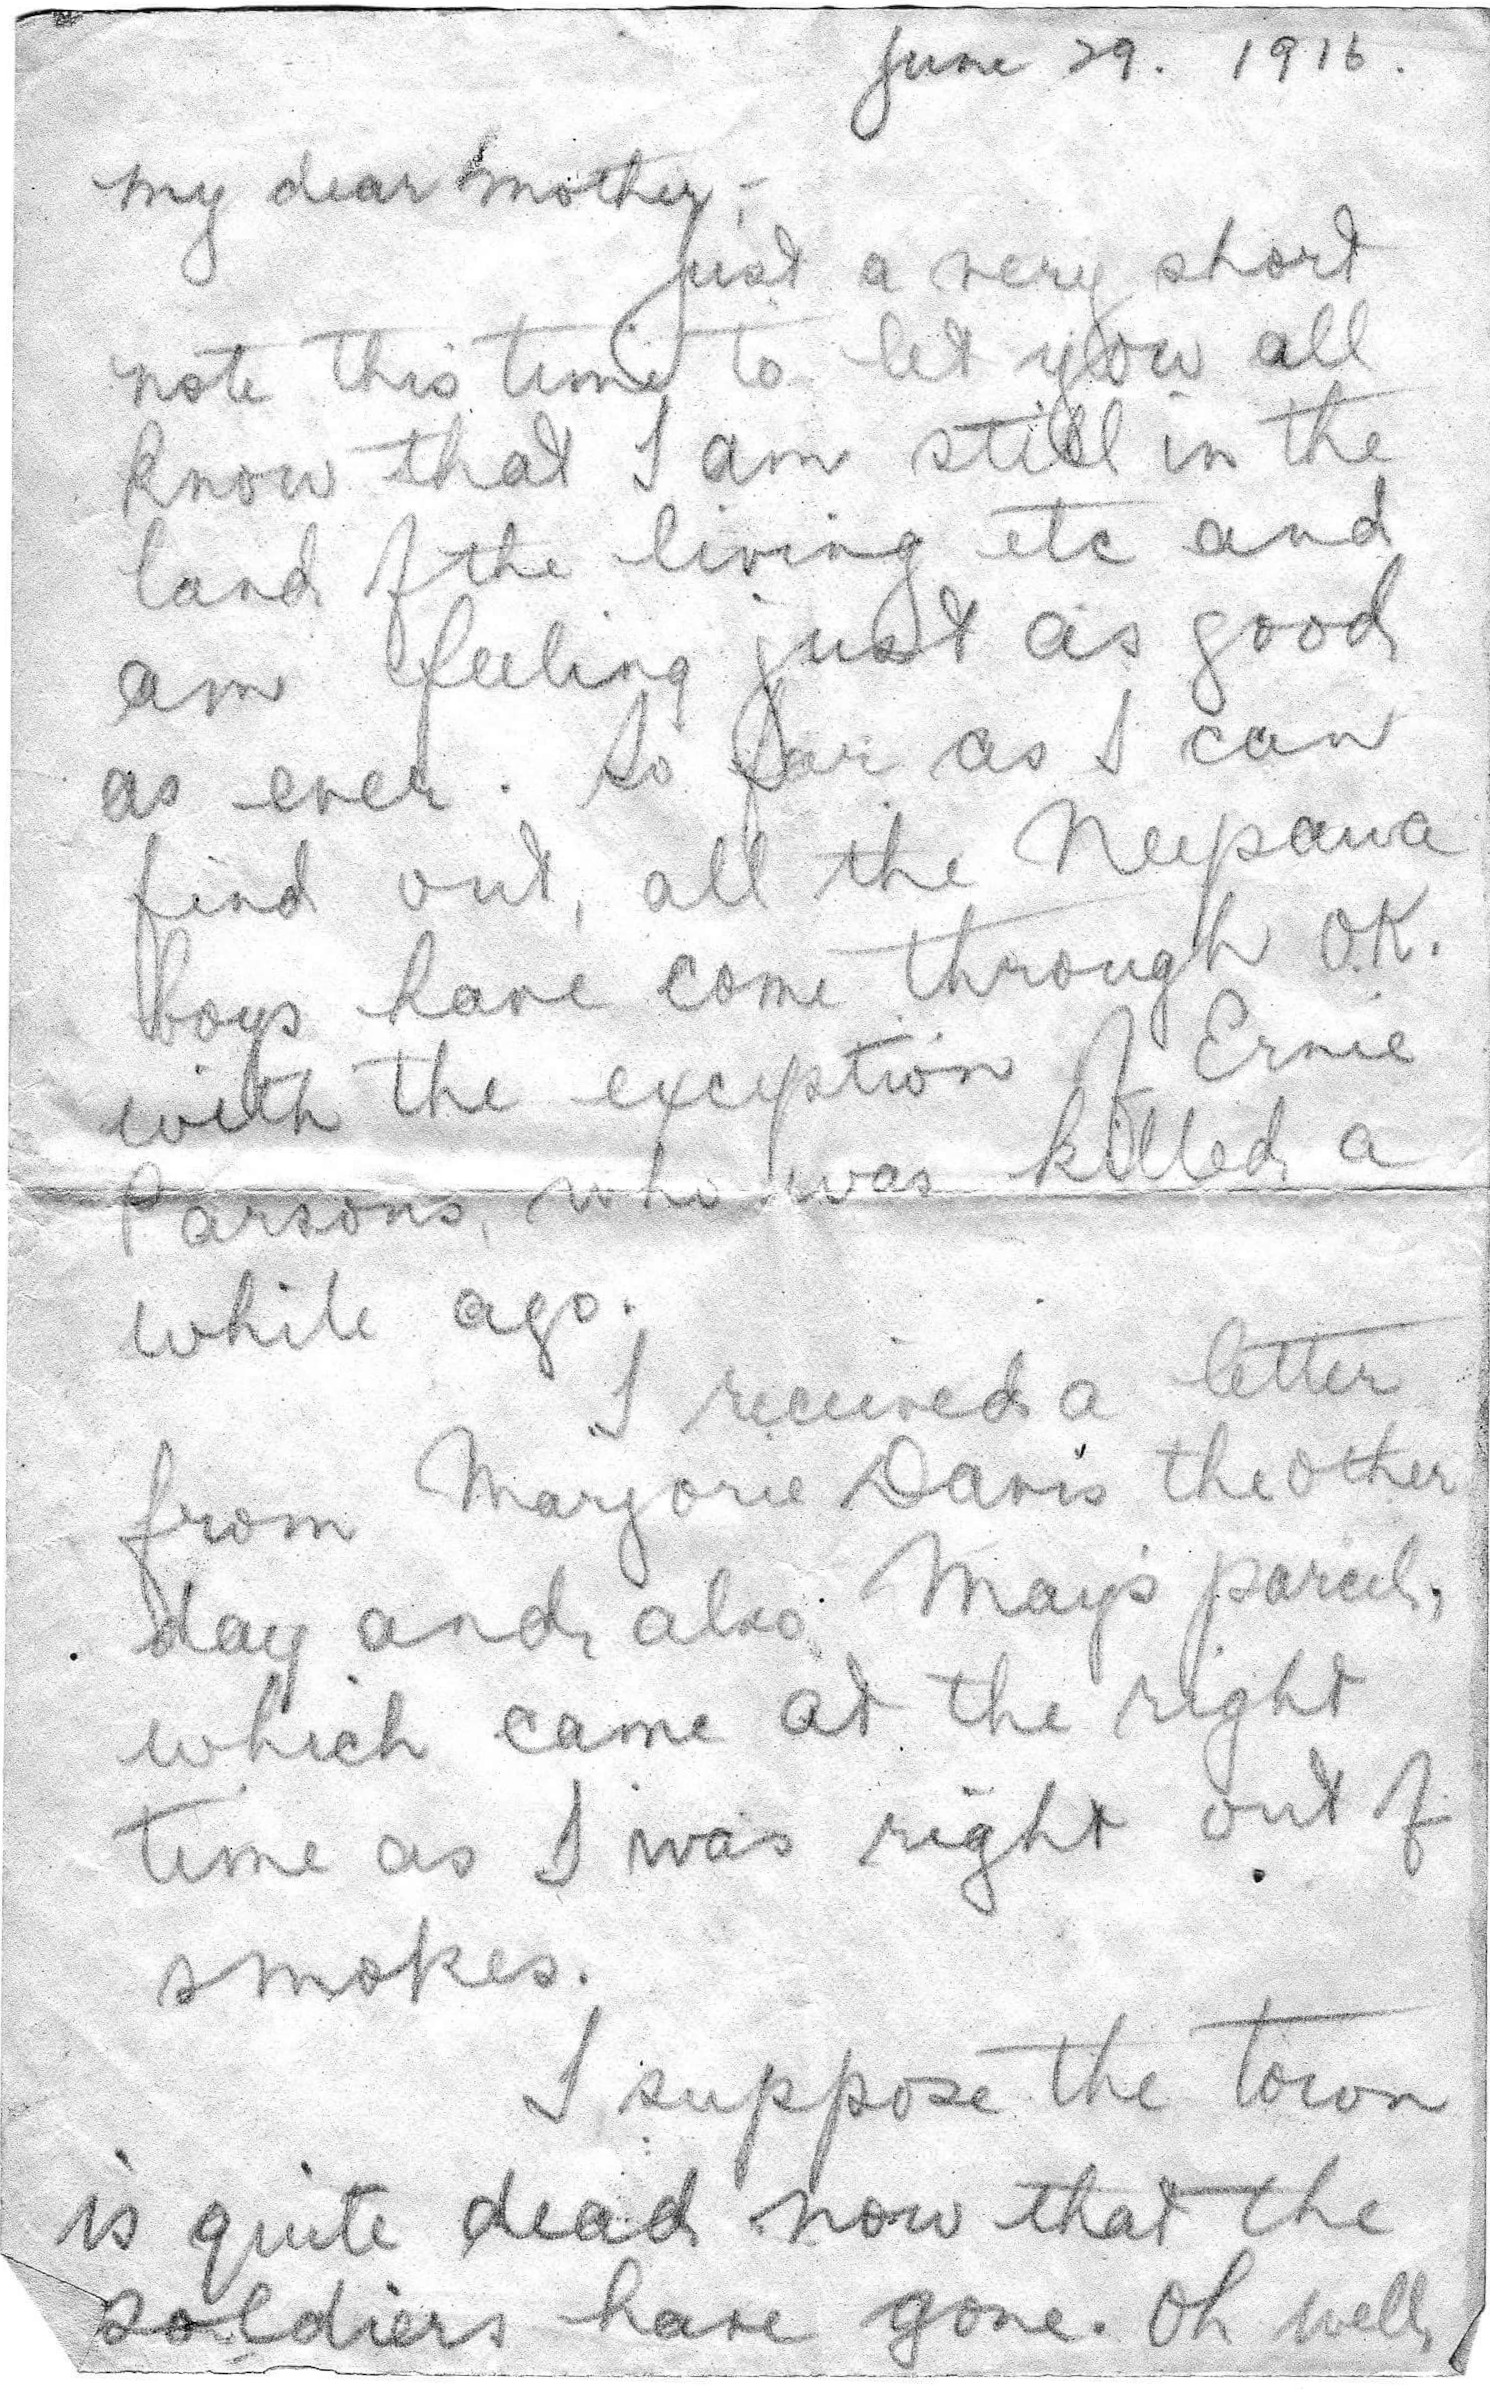 June 29. 1916.
My dear Mother,-
Just a very short
note this time to let you all
know that I am still in the
land of the living etc and
am feeling just as good
as ever. So far as I can
find out, all the Neepawa
boys have come through O.K.
with the exception of Ernie
Parsons, who was killed a
while ago.
I received a letter
from Marjorie Davis the other
day and also May's parcel,
which came at the right
time as I was right out of
smokes.
I suppose the town
is quite dead now that the
soldiers have gone. Oh well,